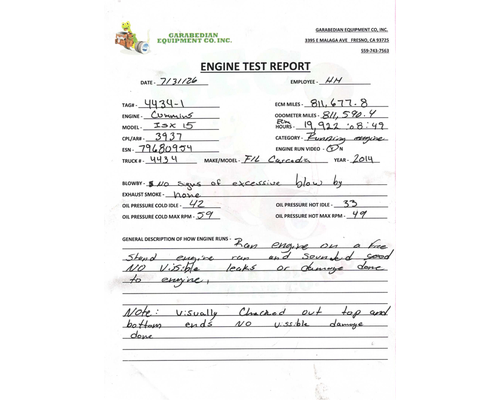 GARABEDIAN
EQUIPMENT CO. INC.
GARABEDIAN EQUIPMENT CO, INC.
3395 E MALAGA AVE FRESNO, CA 93725
559-743-7563
ENGINE TEST REPORT
DATE - 7/31/26 EMPLOYEE - HH
TAG# - 4434-1 ECM MILES - 811,677.8
ENGINE - Cummins ODOMETER MILES - 811,590.4
MODEL - ISX 15 HOURS - 19,922:08:49
CPL/AR# - 3937 CATEGORY - Running engine
ESN - 79680954 ENGINE RUN VIDEO - Y N
TRUCK # - 4434 MAKE/MODEL - F/L Cascadia YEAR - 2014
BLOWBY - No signs of excessive blow by
EXHAUST SMOKE - none
OIL PRESSURE COLD IDLE - 42 OIL PRESSURE HOT IDLE - 33
OIL PRESSURE COLD MAX RPM - 59 OIL PRESSURE HOT MAX RPM - 49
GENERAL DESCRIPTION OF HOW ENGINE RUNS - Ran engine on a free
stand engine ran and sounded good
NO visible leaks or damage done
to engine,
Note: visually checked out top and
bottom ends NO vissible damage
done